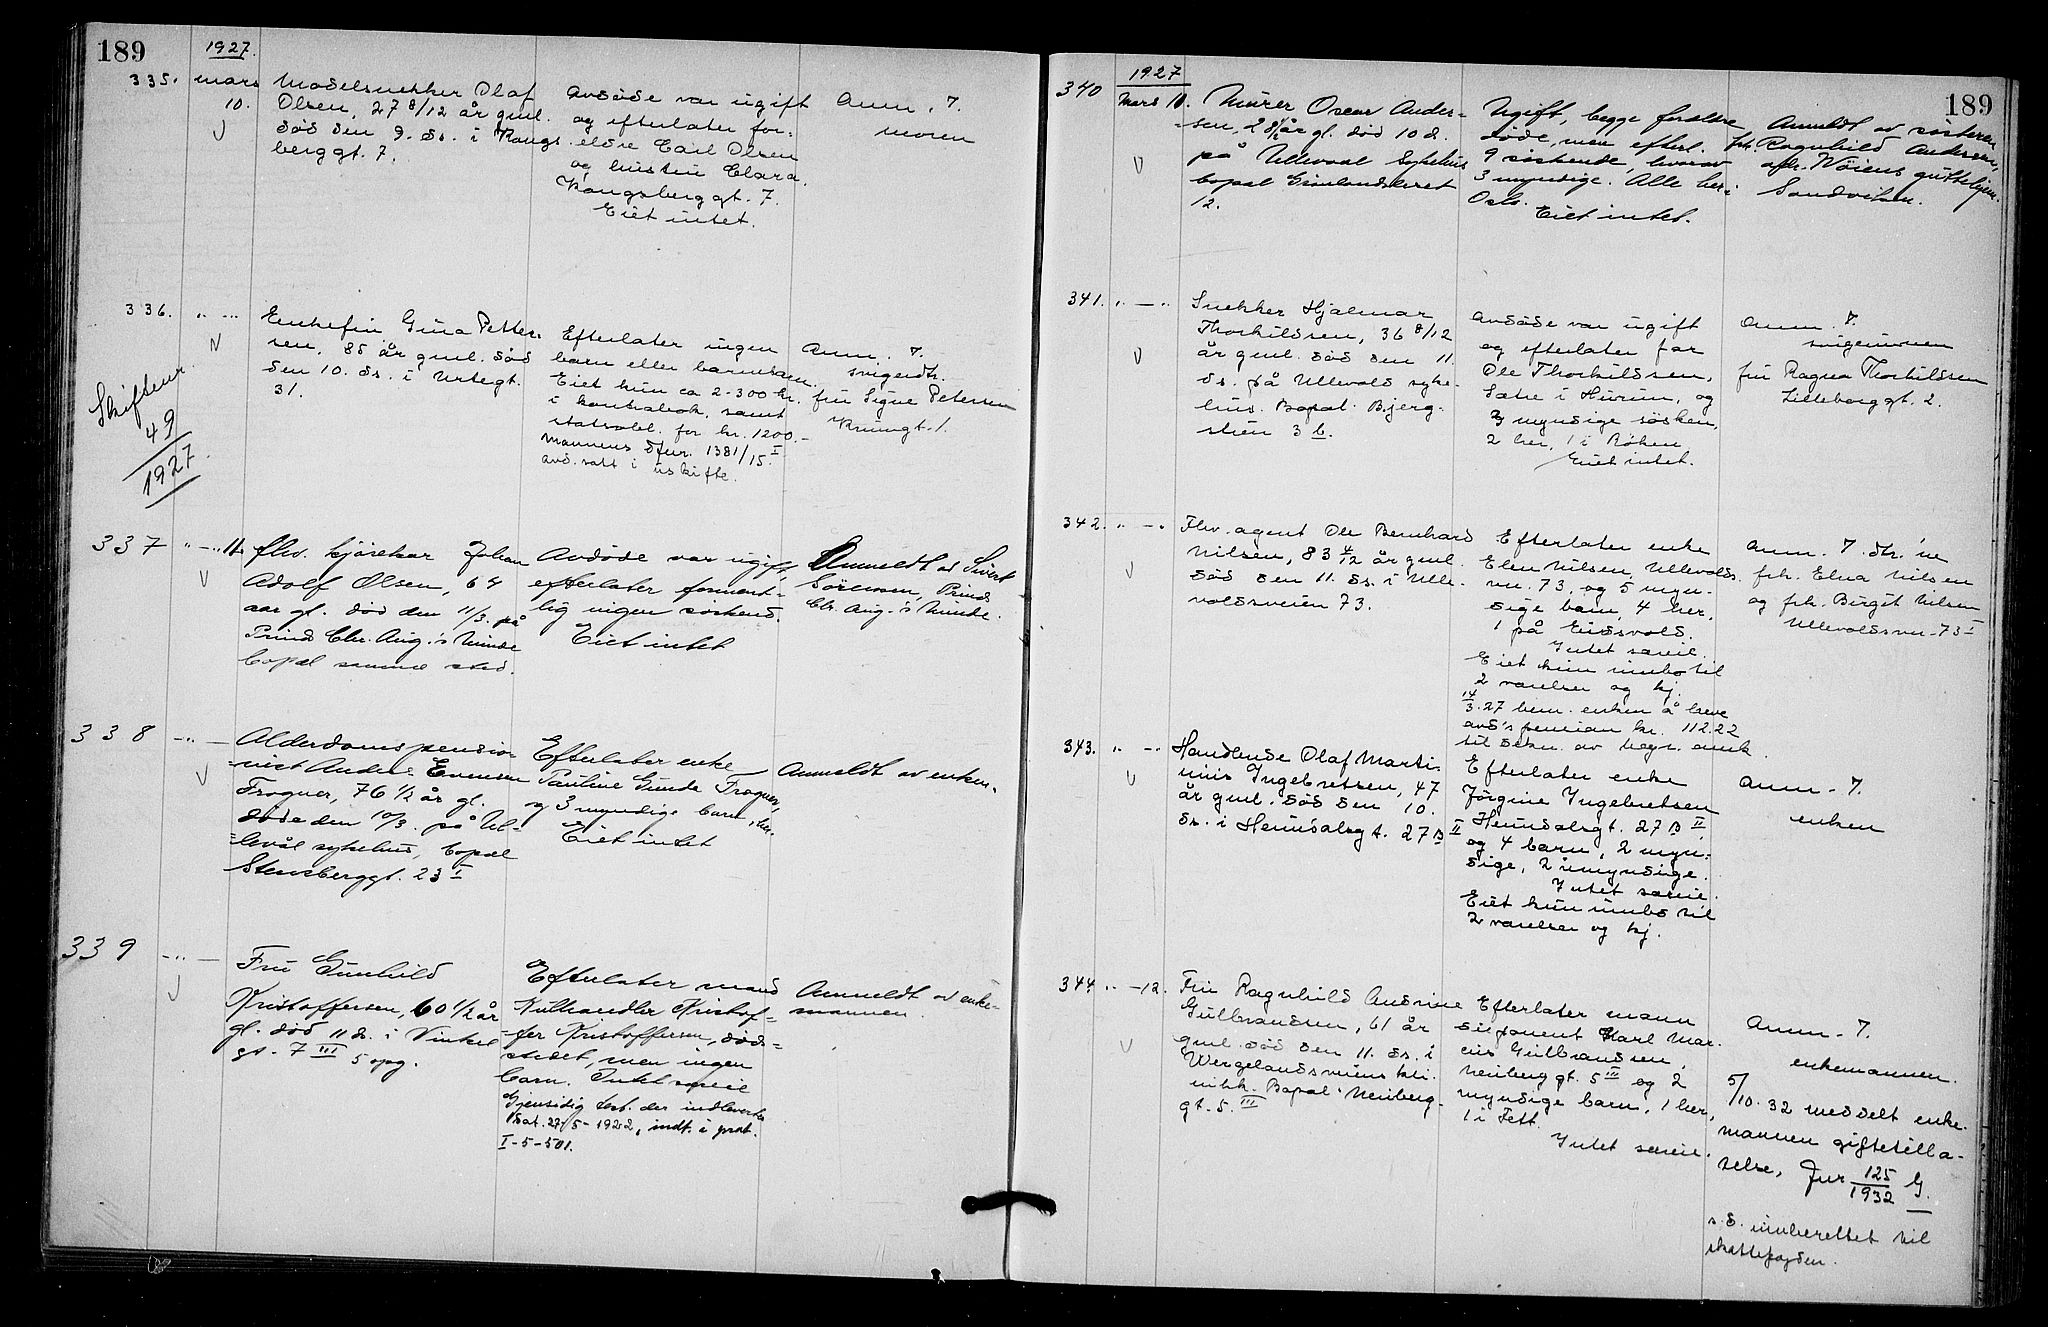 189
1927.
335. mars 10.
Modelsnekker Olaf
Olsen, 27 8/12 år gml.
död den 9. ds. i Kongs-
berggt. 7.
Avdöde var ugift
og efterlater for-
eldre Carl Olsen
og hustru Clara,
Kongsberggt. 7.
Eiet intet.
Anm. 7.
moren
336. " — "
Enkefru Gina Petter-
sen, 85 år gml. död
den 10. ds. i Urtegt.
31.
Efterlater ingen
barn eller barnebarn.
Eiet kun ca 2-300 kr.
i kontrabok, samt
statsobl. for kr. 1200.-
Mannens dfnr. 1381/15 I
avd. satt i uskifte.
Anm. 7.
svigerdtr.
fru Signe Petersen
Krumgt. 1.
Skiftenr.
49
1927.
337 " — " 11.
flv. kjörekar Johan
Adolf Olsen, 64
aar gl. död den 11/3. på
Prinds Chr. Aug.'s Minde
bopæl samme sted.
Avdöde var ugift,
efterlater forment-
lig ingen söskend.
Eiet intet
Anmeldt av Sivert
Sörensen, Prinds
Chr. Aug.'s Minde.
338 — " —
Alderdomspensio-
nist Anders Evensen
Frogner, 76 1/2 år gl.
döde den 10/3. på Ul-
levål sykehus, bopæl
Stensberggt. 23 I
Efterlater enke
Pauline Gunda Frogner,
og 3 myndige barn, her.
Eiet intet
Anmeldt av enken.
339 — " —
Fru Gunhild
Kristoffersen, 60 1/2 år
gl. död 11. ds. i Vinkel
gt. 7 III 5 opg.
Efterlater mand
Kulhandler Kristof-
fer Kristoffersen, döds-
stedet, men ingen
barn. Intet særeie
Gjensidig test. der indleveres
dat. 27-5-1922, indt. i prot.
I-5-501.
Anmeldt av enke-
mannen.
189
1927
340 Mars 11.
Murer Oscar Ander-
sen, 28 1/2 år gl. död 10 ds.
på Ullevaal Sykehus
bopæl Grönlandsleret
12.
Ugift, begge foreldre
döde, men efterl.
9 söskende, hvorav
3 myndige. Alle her i
Oslo. Eiet intet.
Anmeldt av sösteren
frk. Ragnhild Andersen,
adr. Nöiens guttehjem
Sandviken.
341. " — "
Snekker Hjalmar
Thorkildsen, 36 8/12
år gml. död den 11.
ds. på Ullevold syke-
hus. Bopæl Bjerg-
stien 3 b.
Avdöde var ugift
og efterlater far
Ole Thorkildsen,
Sætre i Hurum, og
3 myndige sösken,
2 her, 1 i Röken
Eiet intet.
Anm. 7.
svigerinnen
fru Ragna Thorkildsen
Lilleborggt. 2.
342. " — "
Flv. agent Ole Bernhard
Nilsen, 83 4/12 år gml.
död den 11. ds. i Ulle-
voldsveien 73.
Efterlater enke
Elen Nilsen, Ullevolds-
vn. 73, og 5 myn-
dige barn, 4 her,
1 på Eidsvold.
Intet særeie.
Eiet kun innbo til
2 værelser og kj.
14/3.27 bem. enken å heve
avd's pension kr. 112.22
til dekn. av begr. omk.
Anm. 7. dtr.'ne
frk. Elna Nilsen
og frk. Birgit Nilsen
Ullevoldsvn. 73 I
343. " — "
Handlende Olaf Marti-
nius Ingebretsen, 47
år gml. död den 10.
ds. i Heimdalsgt. 27 B II
Efterlater enke
Jörgine Ingebretsen
Heimdalsgt. 27 B II
og 4 barn, 2 myn-
dige, 2 umyndige.
Intet særeie.
Eiet kun innbo til
2 værelser og kj.
Anm. 7.
enken
344. " — 12.
Fru Ragnhild Andrine
Gulbrandsen, 61 år
gml. död den 11. ds. i
Wergelandsveiens kli-
nikk. Bopæl: Neuberg-
gt. 5. III
Efterlater mann
disponent Karl Mar-
ius Gulbrandsen,
Neuberggt. 5 III og 2
myndige barn, 1 her,
1 i Fett.
Intet særeie.
Anm. 7.
enkemannen.
5/10.32 meddelt enke-
mannen giftetilla-
telse, Jnr 125/1932 G.
s. d. innberettet til
skattefogden.